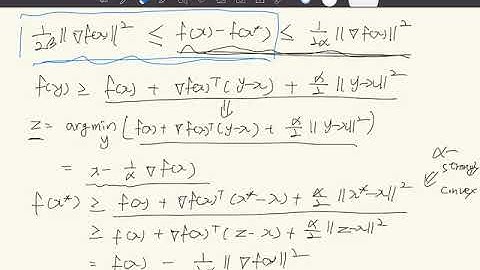 1/2β ||∇f(x)||² ≤ f(x) - f(x*) ≤ 1/2α ||∇f(x)||²
f(y) ≥ f(x) + ∇f(x)ᵀ(y-x) + α/2 ||y-x||²
⇓
z = argmin_y (f(x) + ∇f(x)ᵀ(y-x) + α/2 ||y-x||²)
= x - 1/α ∇f(x)
α-
strongly
convex
f(x*) ≥ f(x) + ∇f(x)ᵀ(x*-x) + α/2 ||x*-x||²
≥ f(x) + ∇f(x)ᵀ(z-x) + α/2 ||z-x||²
= f(x) - 1/2α ||∇f(x)||²